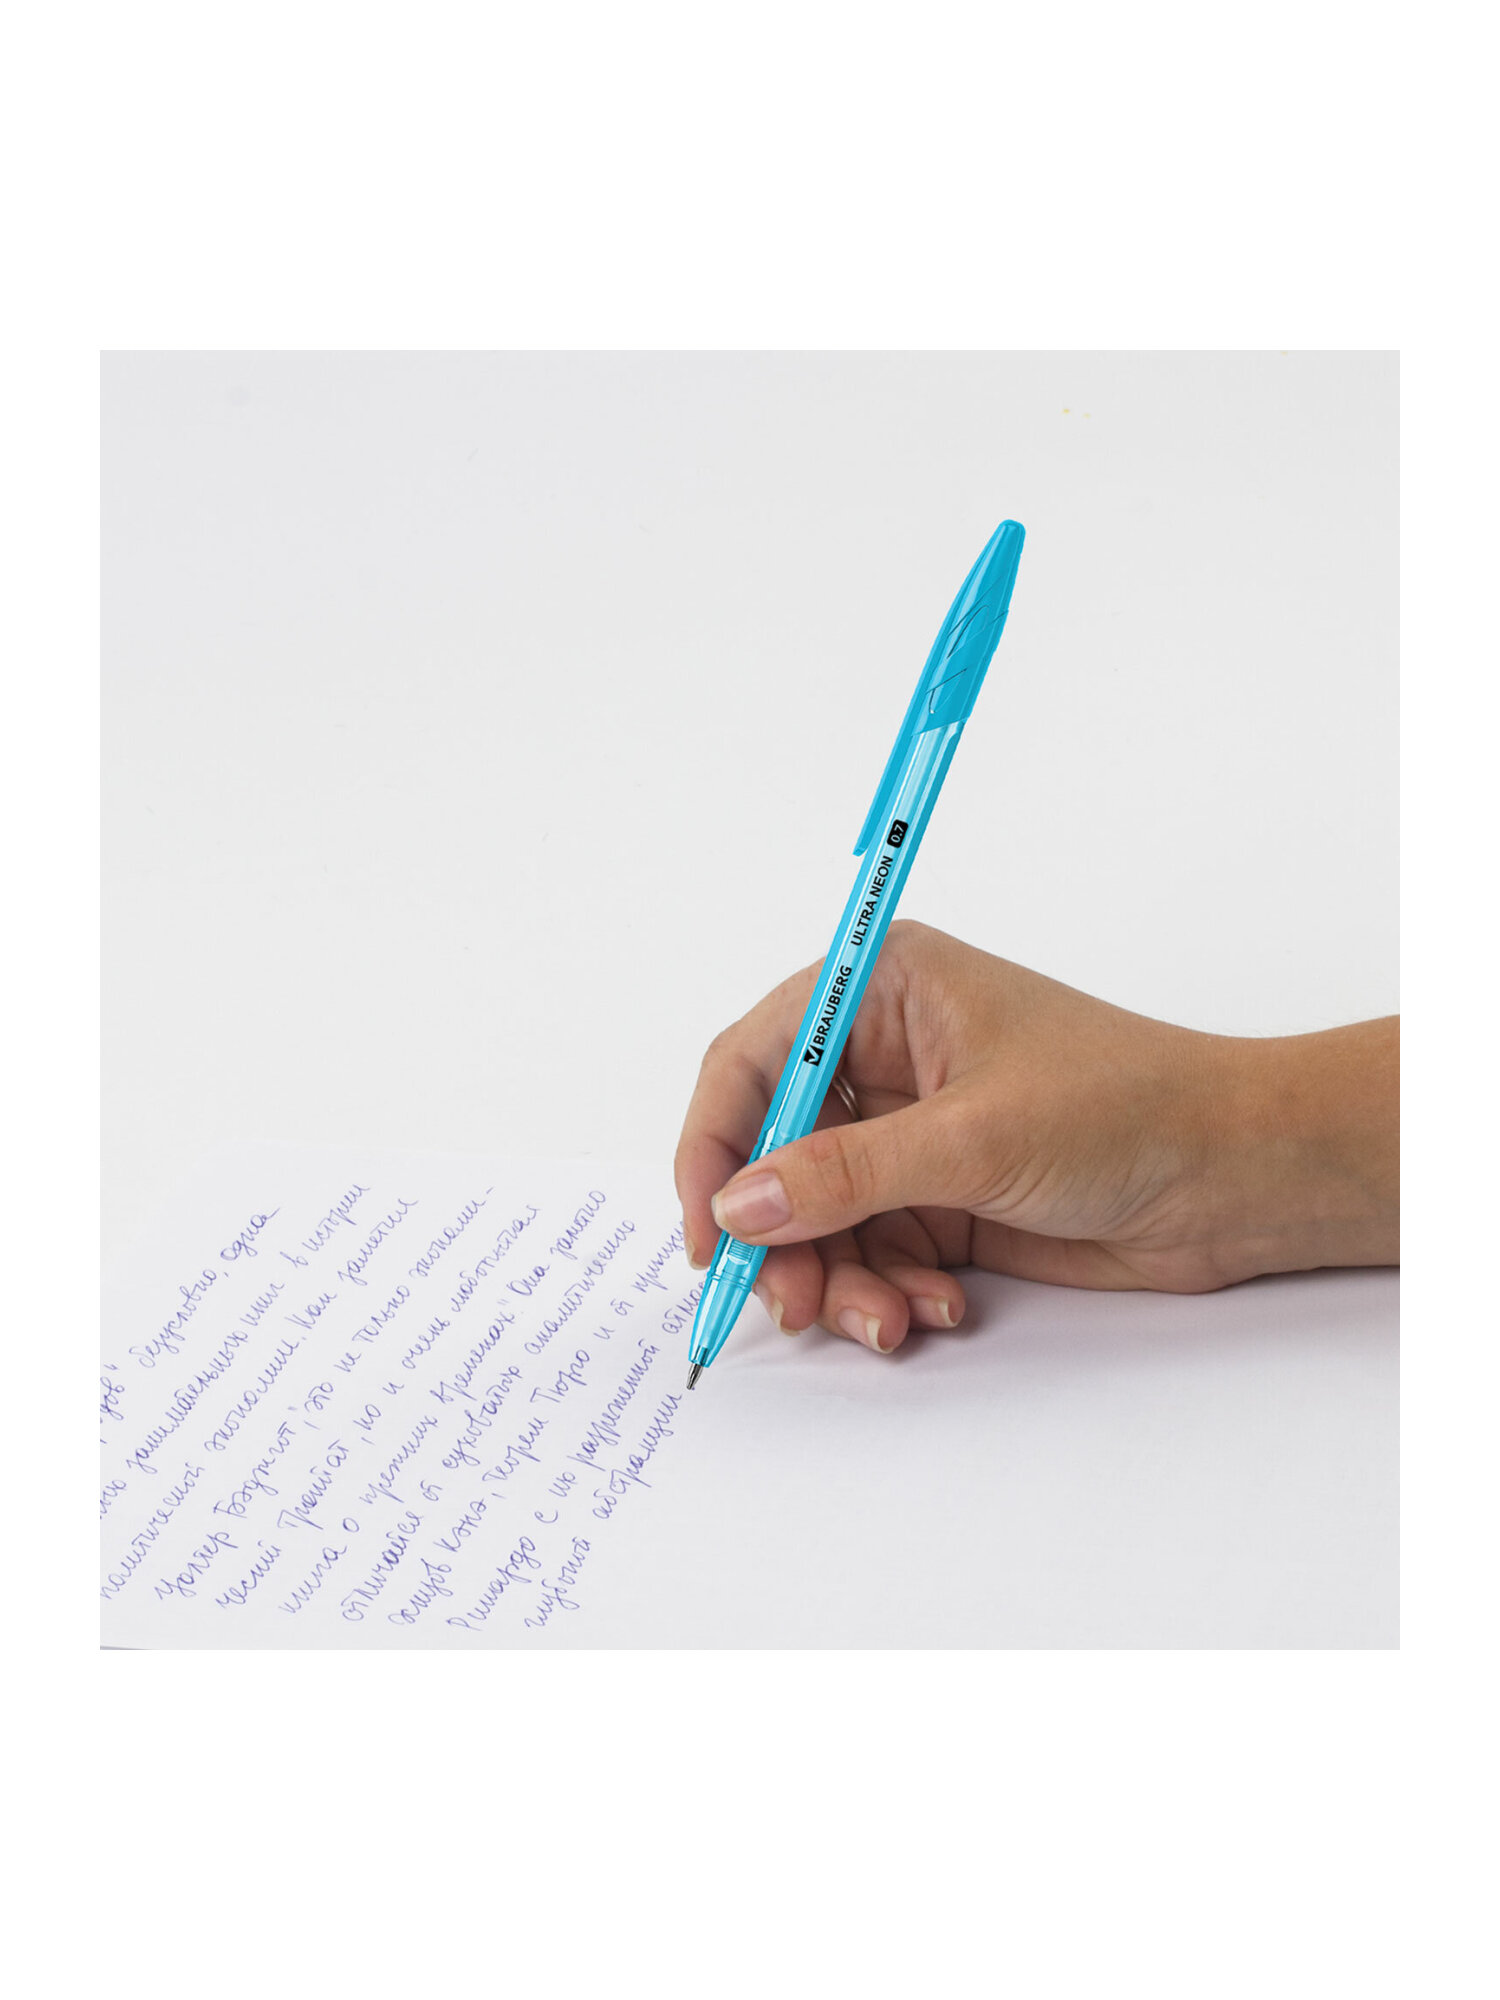 BRAUBERG ULTRA NEON 0.7
безусловно, одна
занимательных книг в истории
политической экономии. Как заметил
Уолтер Бэджгот, "это не только экономи-
ческий трактат, но и очень любопытная
книга о прежних временах". Она заметно
отличается от суховатых аналитических
Кэнэ, теорем Тюрго и от присущей
Рикардо с их разреженной
глубокой абстракции